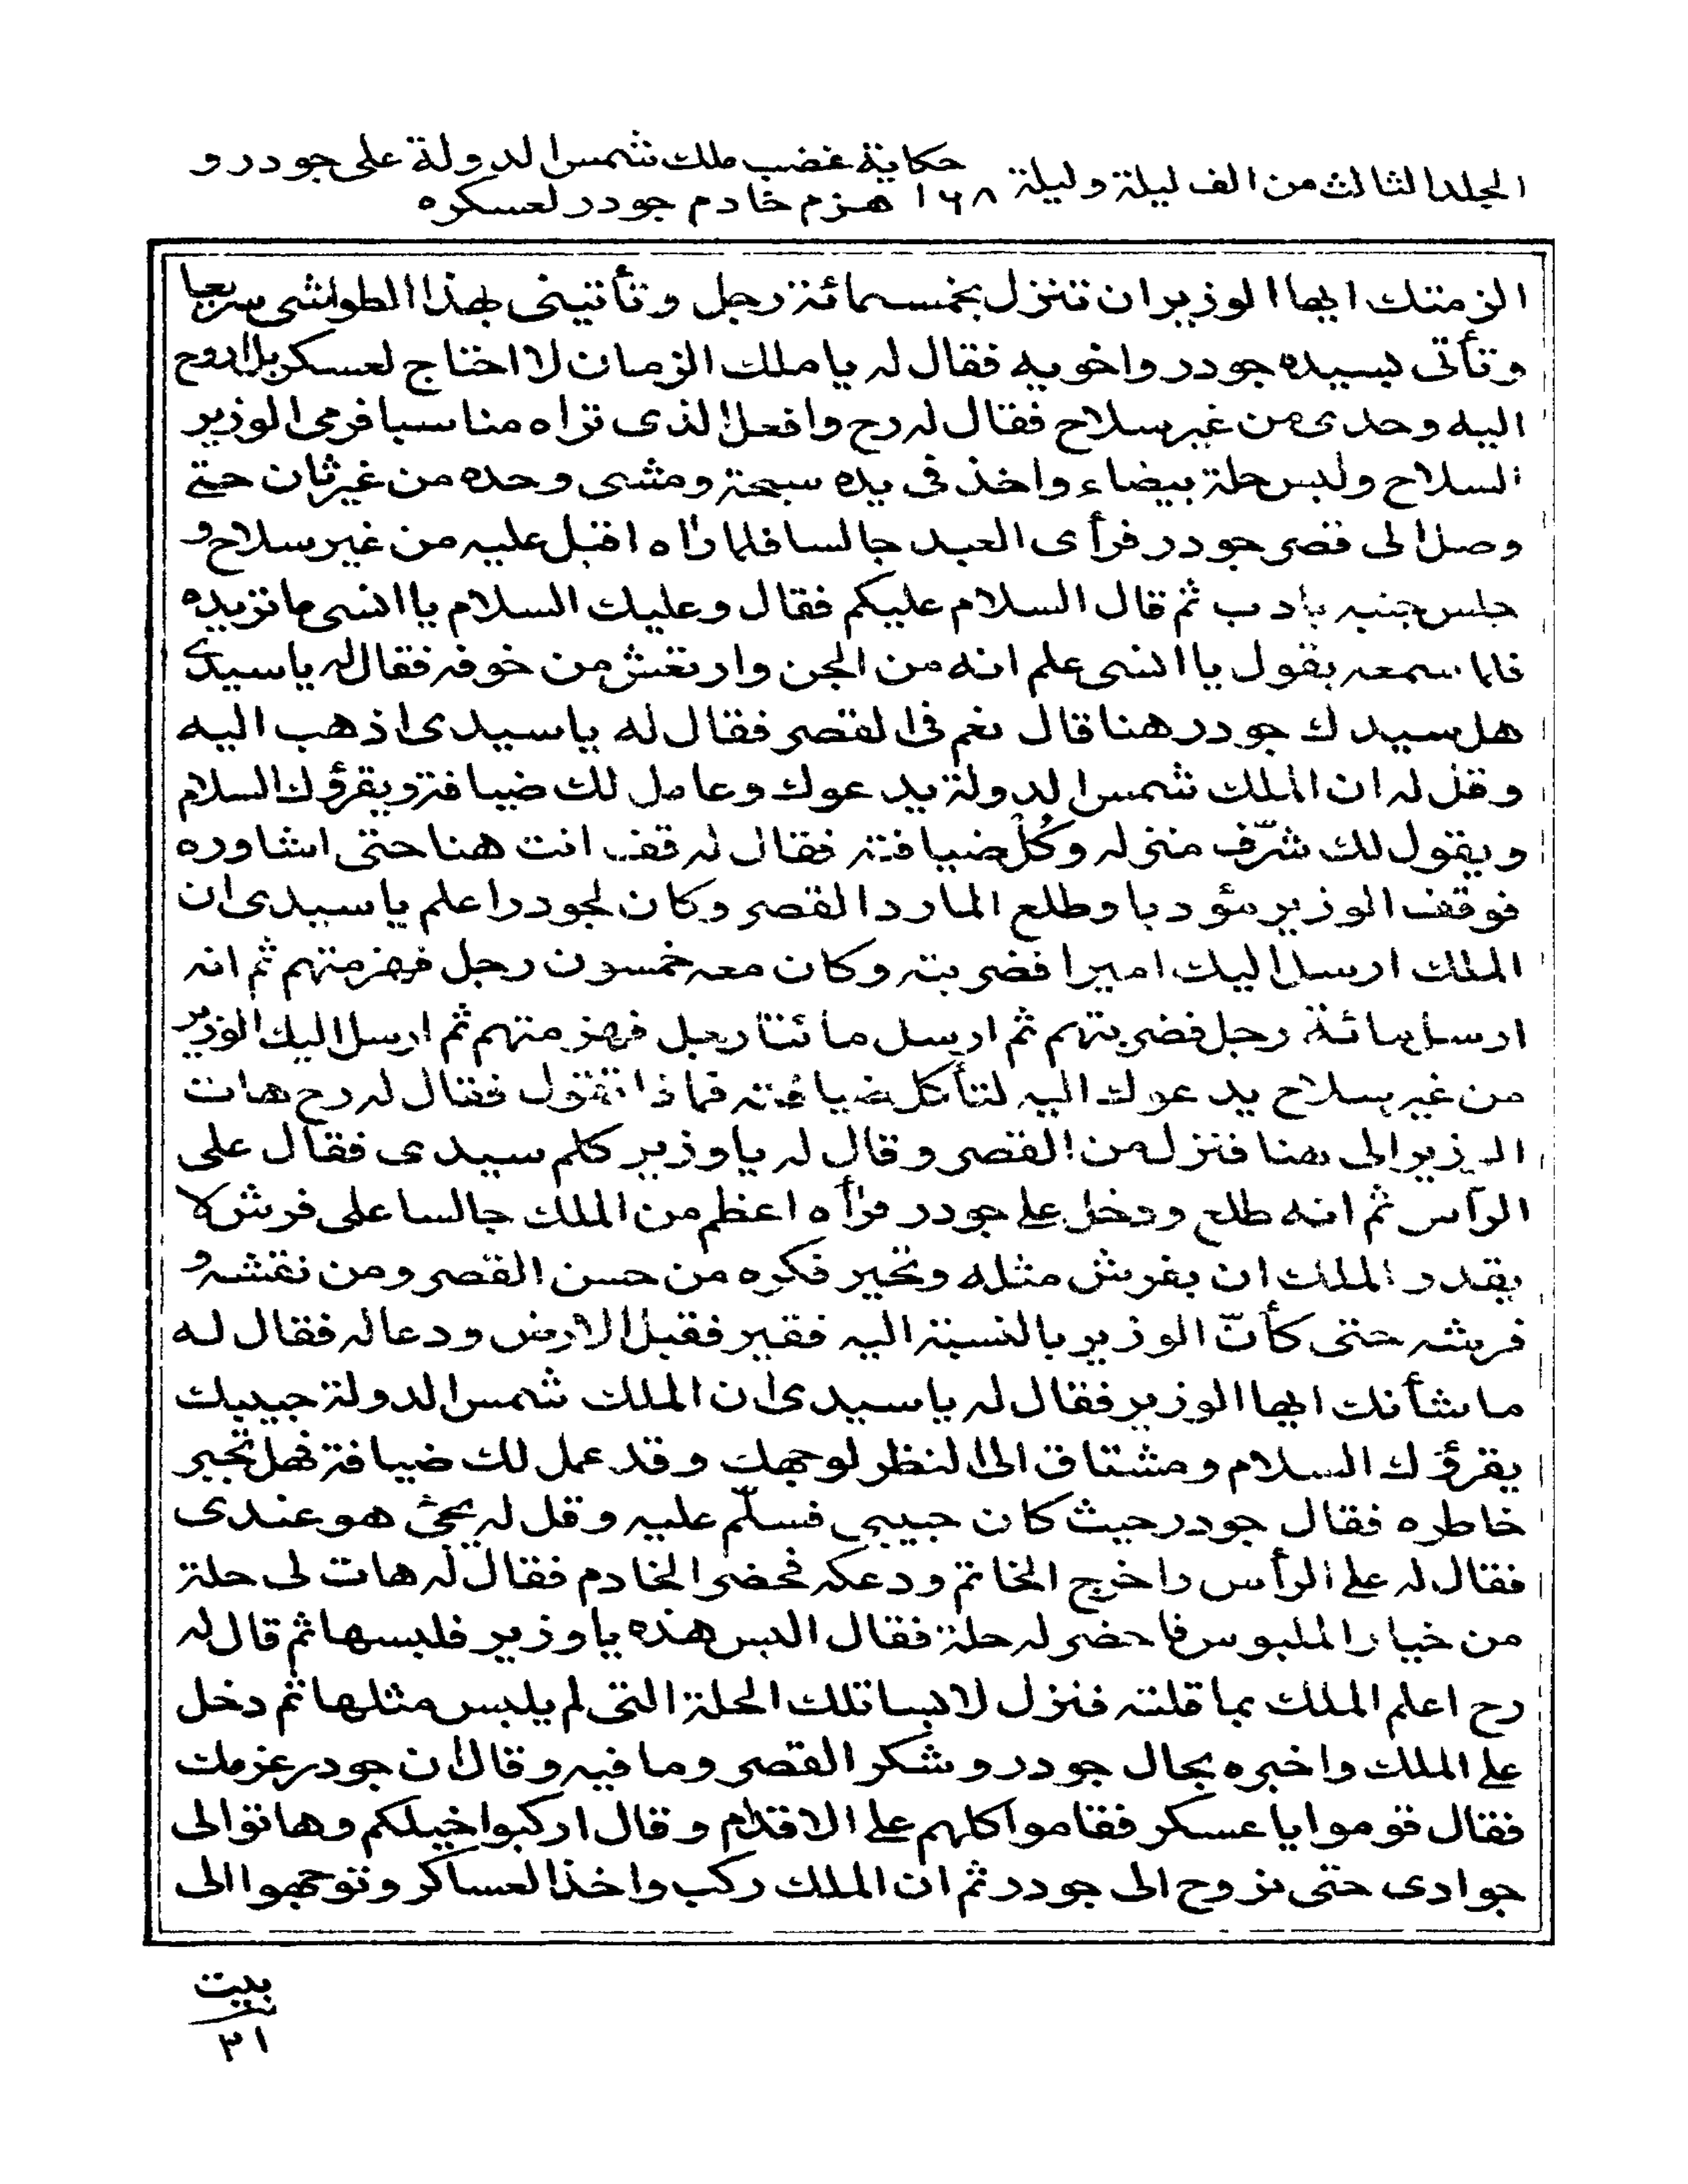 الجلد الثالث من الف ليلة وليلة ١٦٨ حكاية غضب ملك شمس الدولة على جودر و
هزم خادم جودر لعسكره
الزمتك ايها الوزير ان تنزل بخمسمائة رجل وتأتينى بهذا الطواشى سريعا
وتأتى بسيده جودر واخويه فقال له يا ملك الزمان لا احتاج لعسكر بل اروح
اليه وحدى من غير سلاح فقال له رح وافعل الذى تراه مناسبا فرمى الوزير
السلاح ولبس حلة بيضاء واخذ فى يده سبحة ومشى وحده من غير ثان حتى
وصل الى قصر جودر فرأى العبد جالسا فلما رآه اقبل عليه من غير سلاح و
جلس جنبه بادب ثم قال السلام عليكم فقال وعليك السلام يا انسى ما تريده
فلما سمعه يقول يا انسى علم انه من الجن وارتعش من خوفه فقال له يا سيدى
هل سيدك جودر هنا قال نعم فى القصر فقال له يا سيدى اذهب اليه
وقل له ان الملك شمس الدولة يدعوك وعامل لك ضيافة ويقرؤك السلام
ويقول لك شرّف منزله وكُلْ ضيافته فقال له قف انت هنا حتى اشاوره
فوقف الوزير مؤدبا وطلع المارد القصر وكان لجودر اعلم يا سيدى ان
الملك ارسل اليك اميرا فضربته وكان معه خمسون رجل فهزمتهم ثم انه
ارسل مائة رجل فضربتهم ثم ارسل مائتا رجل فهزمتهم ثم ارسل اليك الوزير
من غير سلاح يدعوك اليه لتأكل ضيافته فماذا تقول فقال له رح هات
الوزير الى هنا فنزل من القصر وقال له يا وزير كلم سيدى فقال على
الرأس ثم انه طلع ودخل على جودر فرأه اعظم من الملك جالسا على فرش لا
يقدر الملك ان يفرش مثله وتحير فكره من حسن القصر ومن نقشه و
فرشه حتى كأنّ الوزير بالنسبة اليه فقير فقبل الارض ودعا له فقال له
ما شأنك ايها الوزير فقال له يا سيدى ان الملك شمس الدولة حبيبك
يقرؤك السلام ومشتاق الى النظر لوجهك وقد عمل لك ضيافة فهل تجبر
خاطره فقال جودر حيث كان حبيبى فسلّم عليه وقل له يجئ هو عندى
فقال له على الرأس واخرج الخاتم ودعكه فحضر الخادم فقال له هات لى حلة
من خيار الملبوس فاحضر له حلة فقال البس هذه يا وزير فلبسها ثم قال له
رح اعلم الملك بما قلته فنزل لابسا تلك الحلة التى لم يلبس مثلها ثم دخل
على الملك واخبره بحال جودر وشكر القصر وما فيه وقال ان جودر عزمك
فقال قوموا يا عسكر فقاموا كلهم على الاقدام وقال اركبوا خيلكم وهاتوا لى
جوادى حتى نروح الى جودر ثم ان الملك ركب واخذ العساكر وتوجهوا الى
بيت
٣١